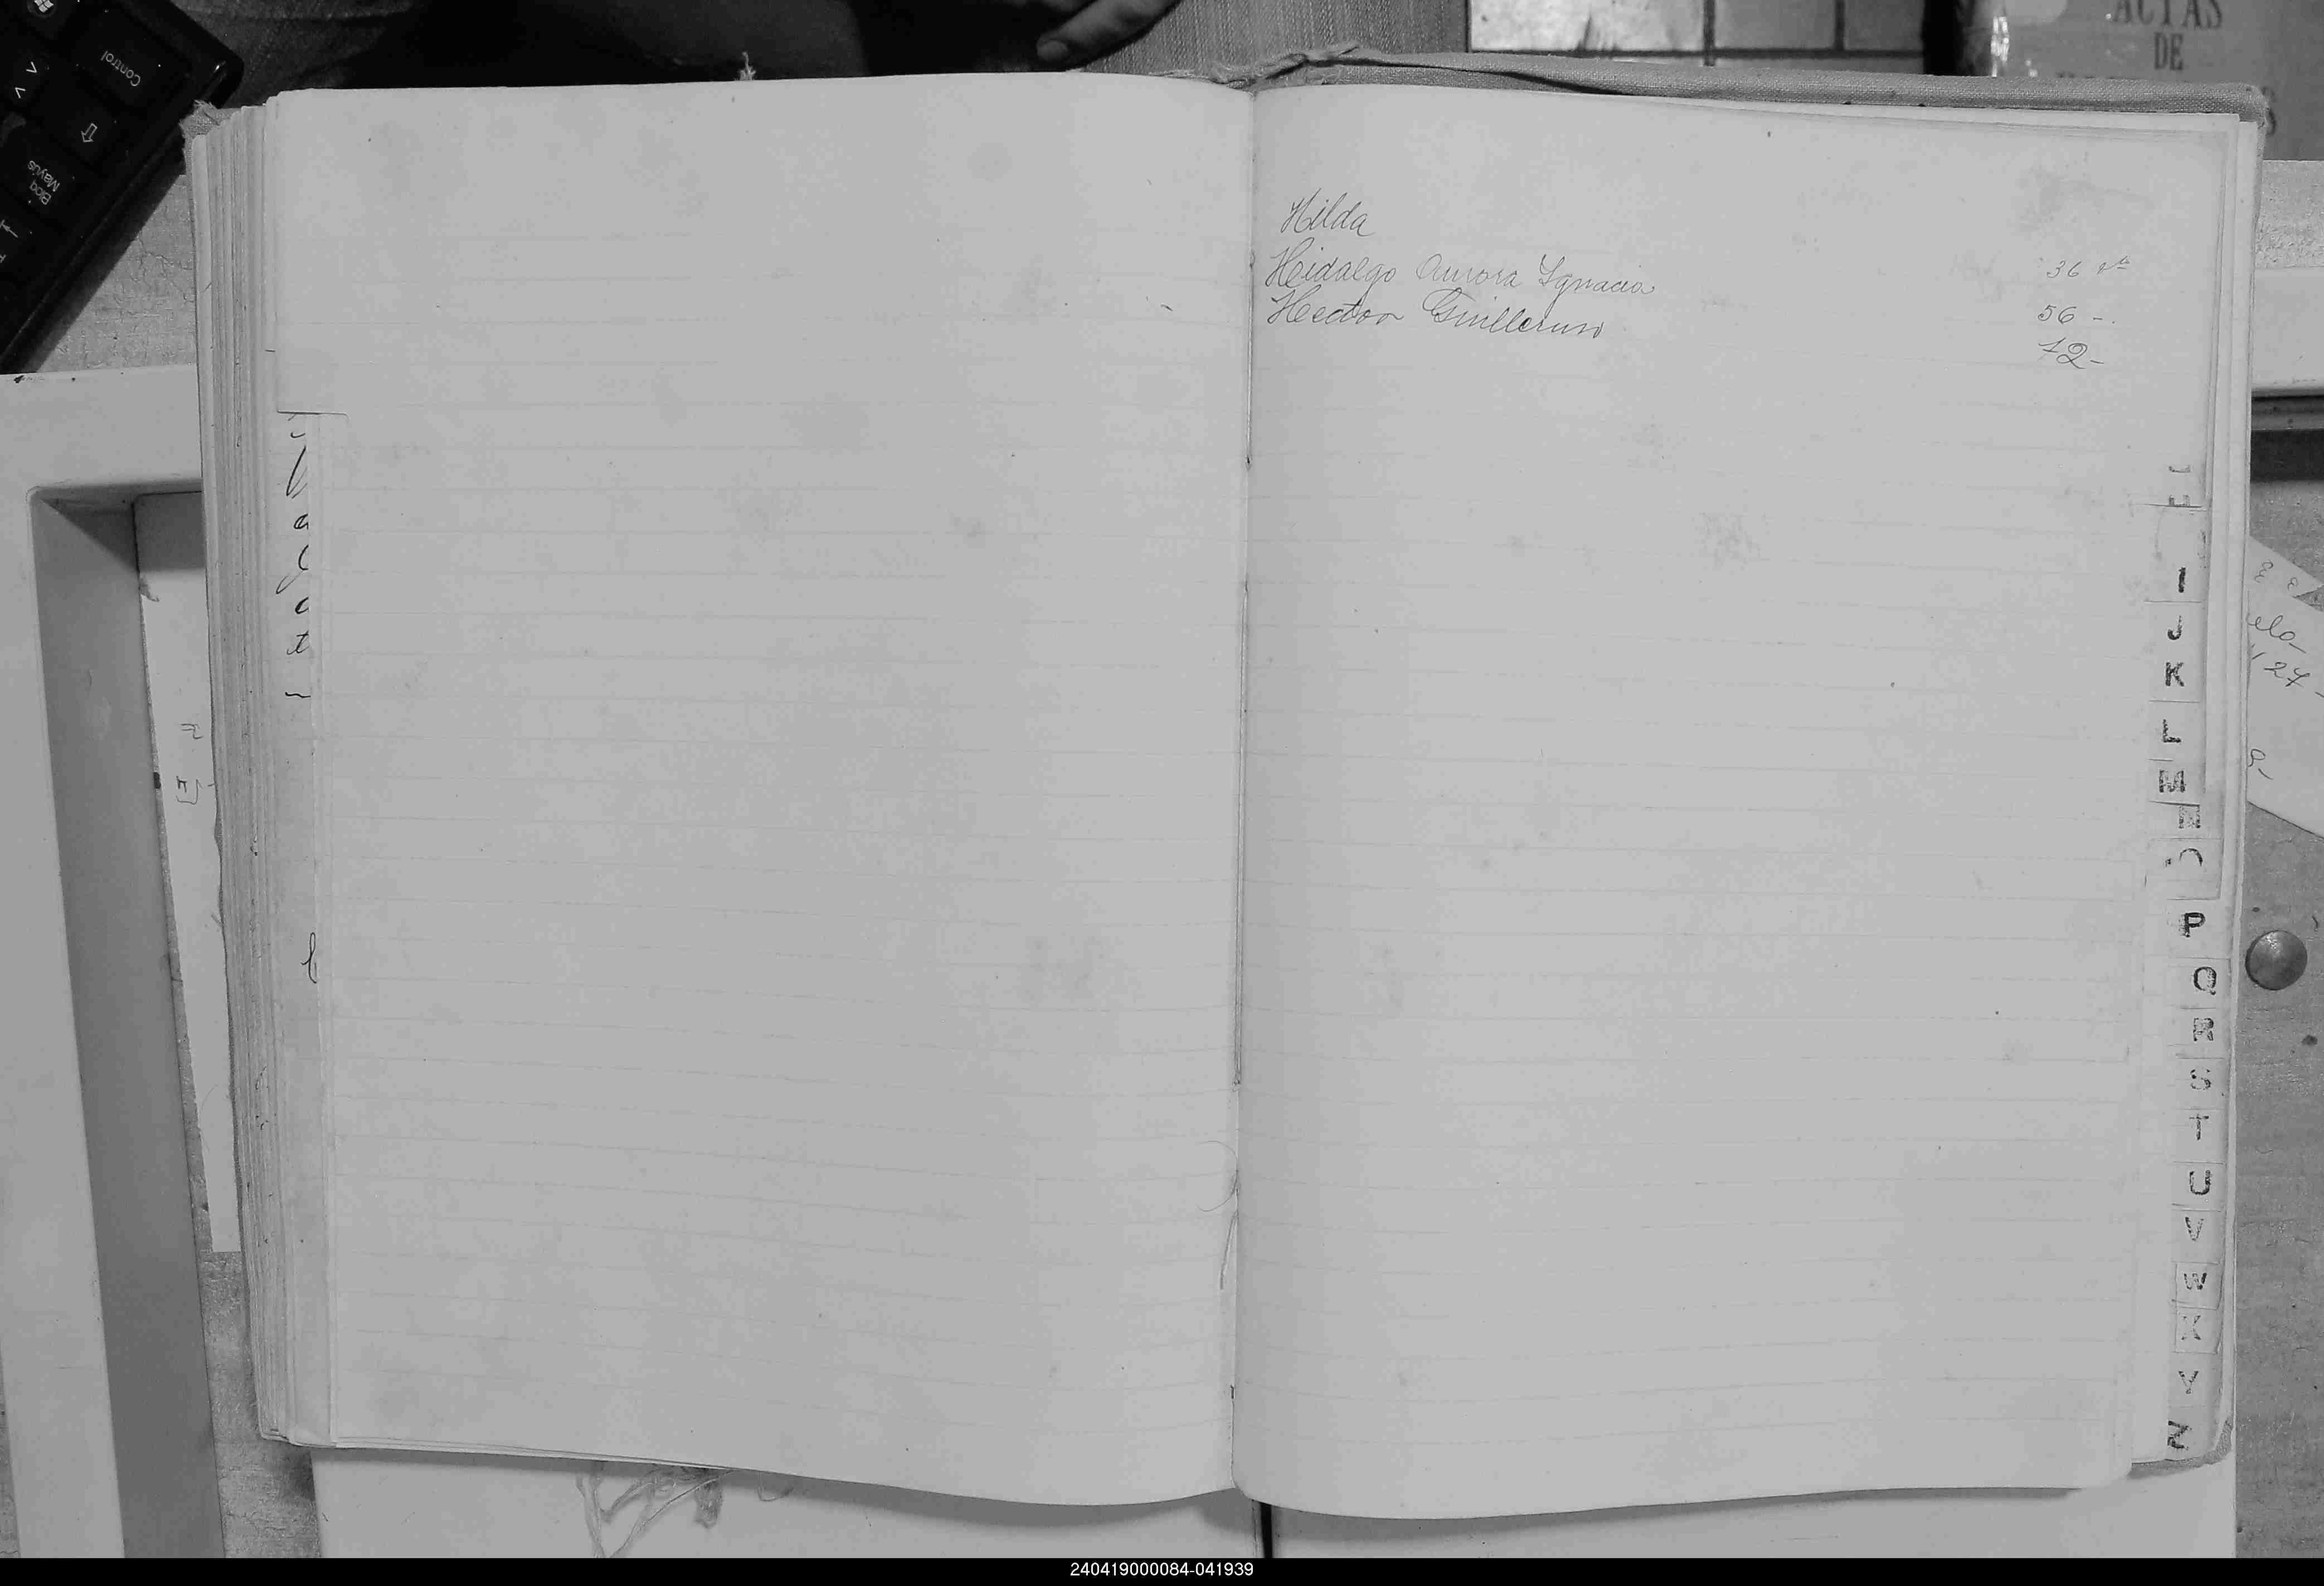 Control
Bloq
Mayús
ACTAS
DE
Hilda
Heidalgo Aurora Ignacia
36 vta
Hector Guillermo
56 -.
72-
I
J
K
L
M
N
O
P
Q
R
S
T
U
V
W
X
Y
Z
27-
240419000084-041939